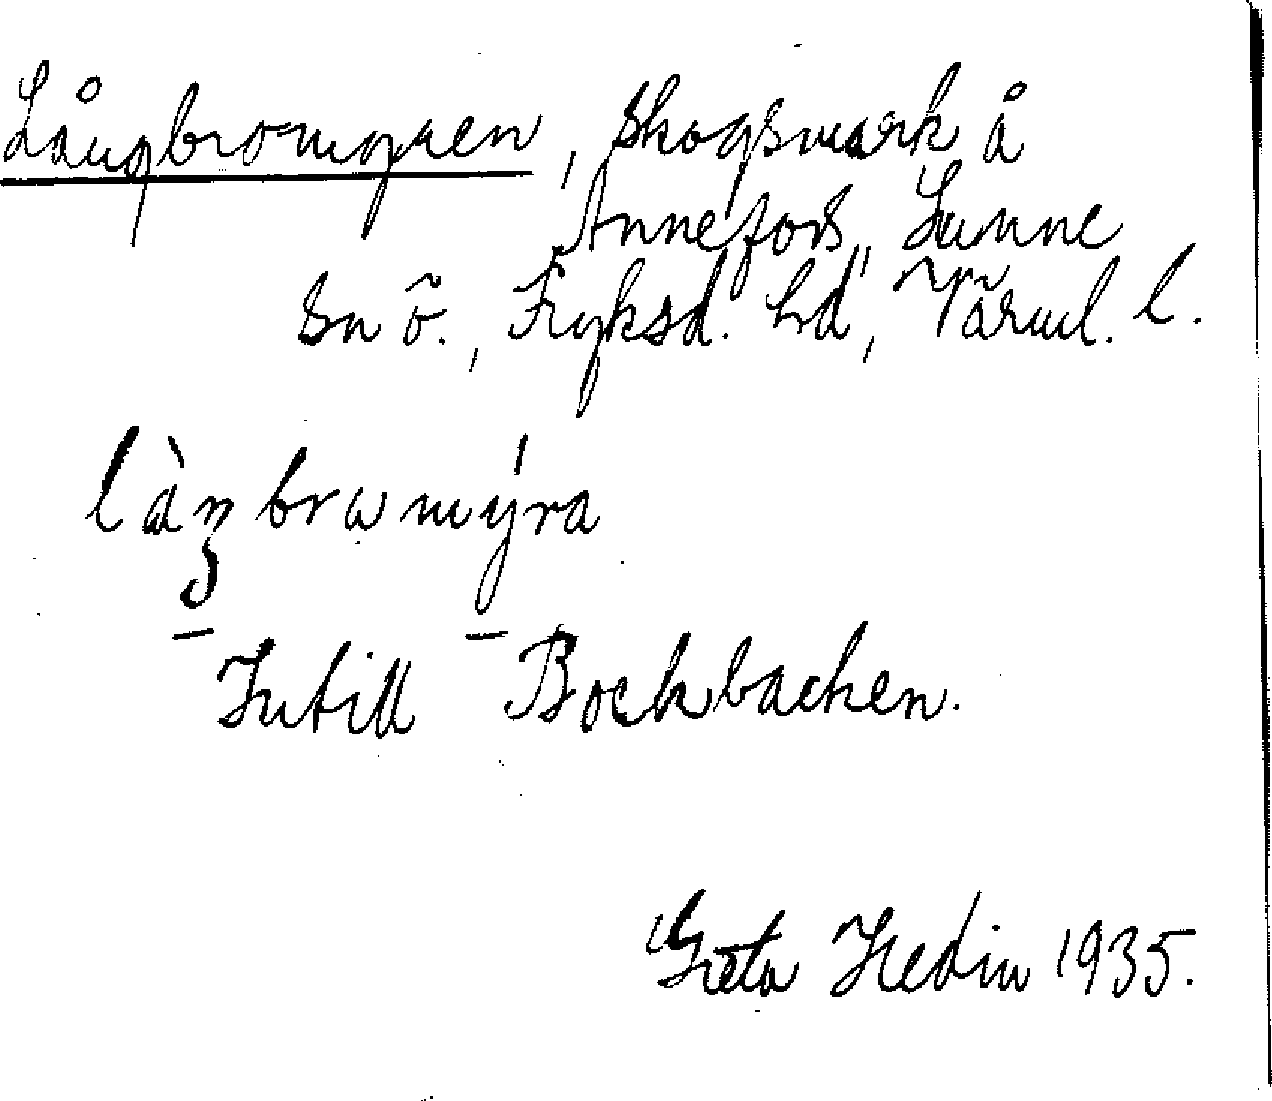 Långbromyren, skogsmark å
Annefors, Sunne
sn ö., Fryksd. hd, Värml. l.
làŋbrωmýra
Intill Bockbacken.
Greta Hedin 1935.